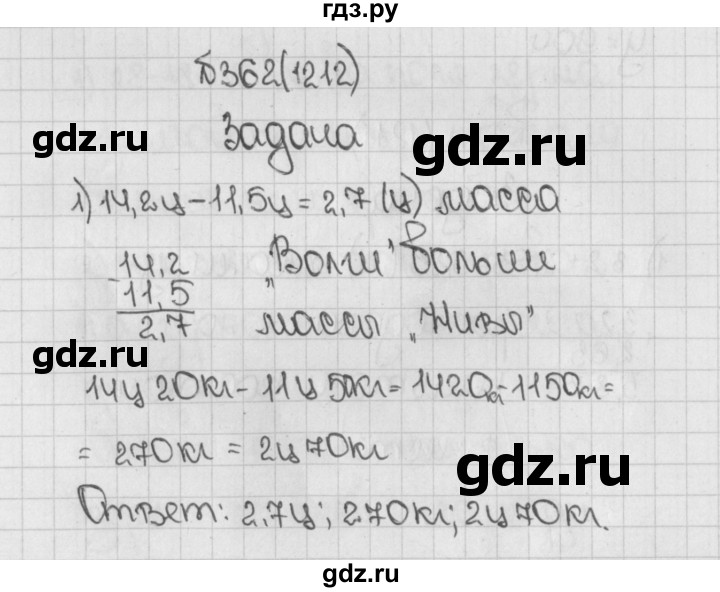 гдз.ру
№362(1212)
gdz.ru
gdz.ru
Задача
1) 14,2ц - 11,5ц = 2,7 (ц) масса
14,2 „Волги" больше
- 11,5
2,7 массы „Нивы"
gdz.ru
14ц 20кг - 11ц 50кг = 1420кг - 1150кг =
= 270кг = 2ц 70кг
gdz.ru
Ответ: 2,7ц; 270кг; 2ц 70кг.
gdz.ru